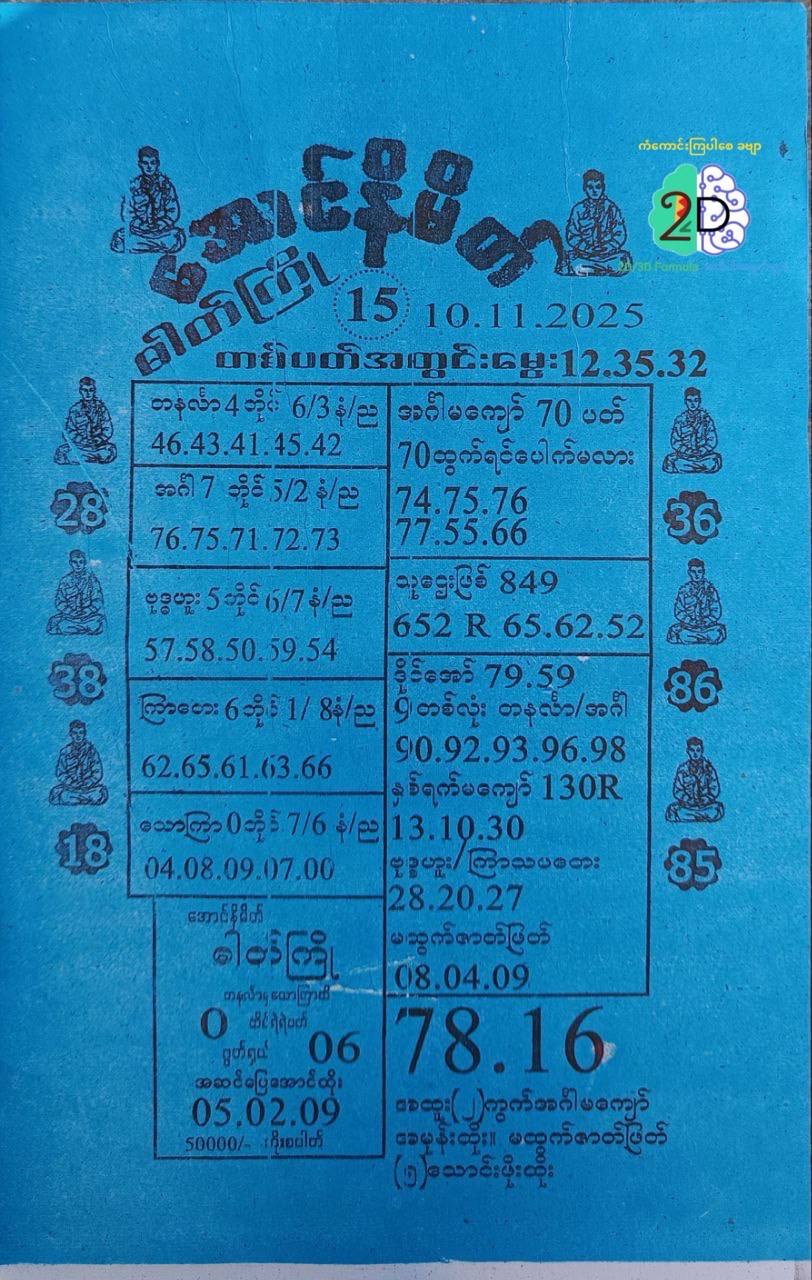 ကံကောင်းကြပါစေ ခဗျာ
2D
2D/3D Formula
အောင်နိမိတ်
ဓါတ်ကြို
15 10.11.2025
တစ်ပတ်အတွင်းမွေး12.35.32
တနင်္လာ 4 ဘိုင် 6/3 နံ/ည
46.43.41.45.42
အင်္ဂါ 7 ဘိုင် 5/2 နံ/ည
76.75.71.72.73
ဗုဒ္ဓဟူး 5 ဘိုင် 6/7 နံ/ည
57.58.50.59.54
ကြာတေး 6 ဘိုင် 1/ 8နံ/ည
62.65.61.63.66
သောကြာ 0 ဘိုင် 7/6 နံ/ည
04.08.09.07.00
28
38
18
အင်္ဂါမကျော် 70 ပတ်
70ထွက်ရင်ပေါက်မလား
74.75.76
77.55.66
သူဌေးဖြစ် 849
652 R 65.62.52
ဒိုင်အော် 79.59
9 တစ်လုံး တနင်္လာ/အင်္ဂါ
90.92.93.96.98
နှစ်ရက်မကျော် 130R
13.10.30
ဗုဒ္ဓဟူး/ကြာသပတေး
28.20.27
မထွက်ဇာတ်ဖြတ်
08.04.09
36
86
85
အောင်နိမိတ်
ဓါတ်ကြို
တနင်္လာမှသောကြာထိ
0 ထိုင်ရဲရဲပတ်
ဖွတ်ရှယ် 06
အဆင်ပြေအောင်ထိုး
05.02.09
50000/- ဂိုးစပါတ်
78.16
အထူး(၂)ကွက်အင်္ဂါမကျော်
မေမုန်းထိုး။ မထွက်ဇာတ်ဖြတ်
(၅)သောင်းဖိုးထိုး